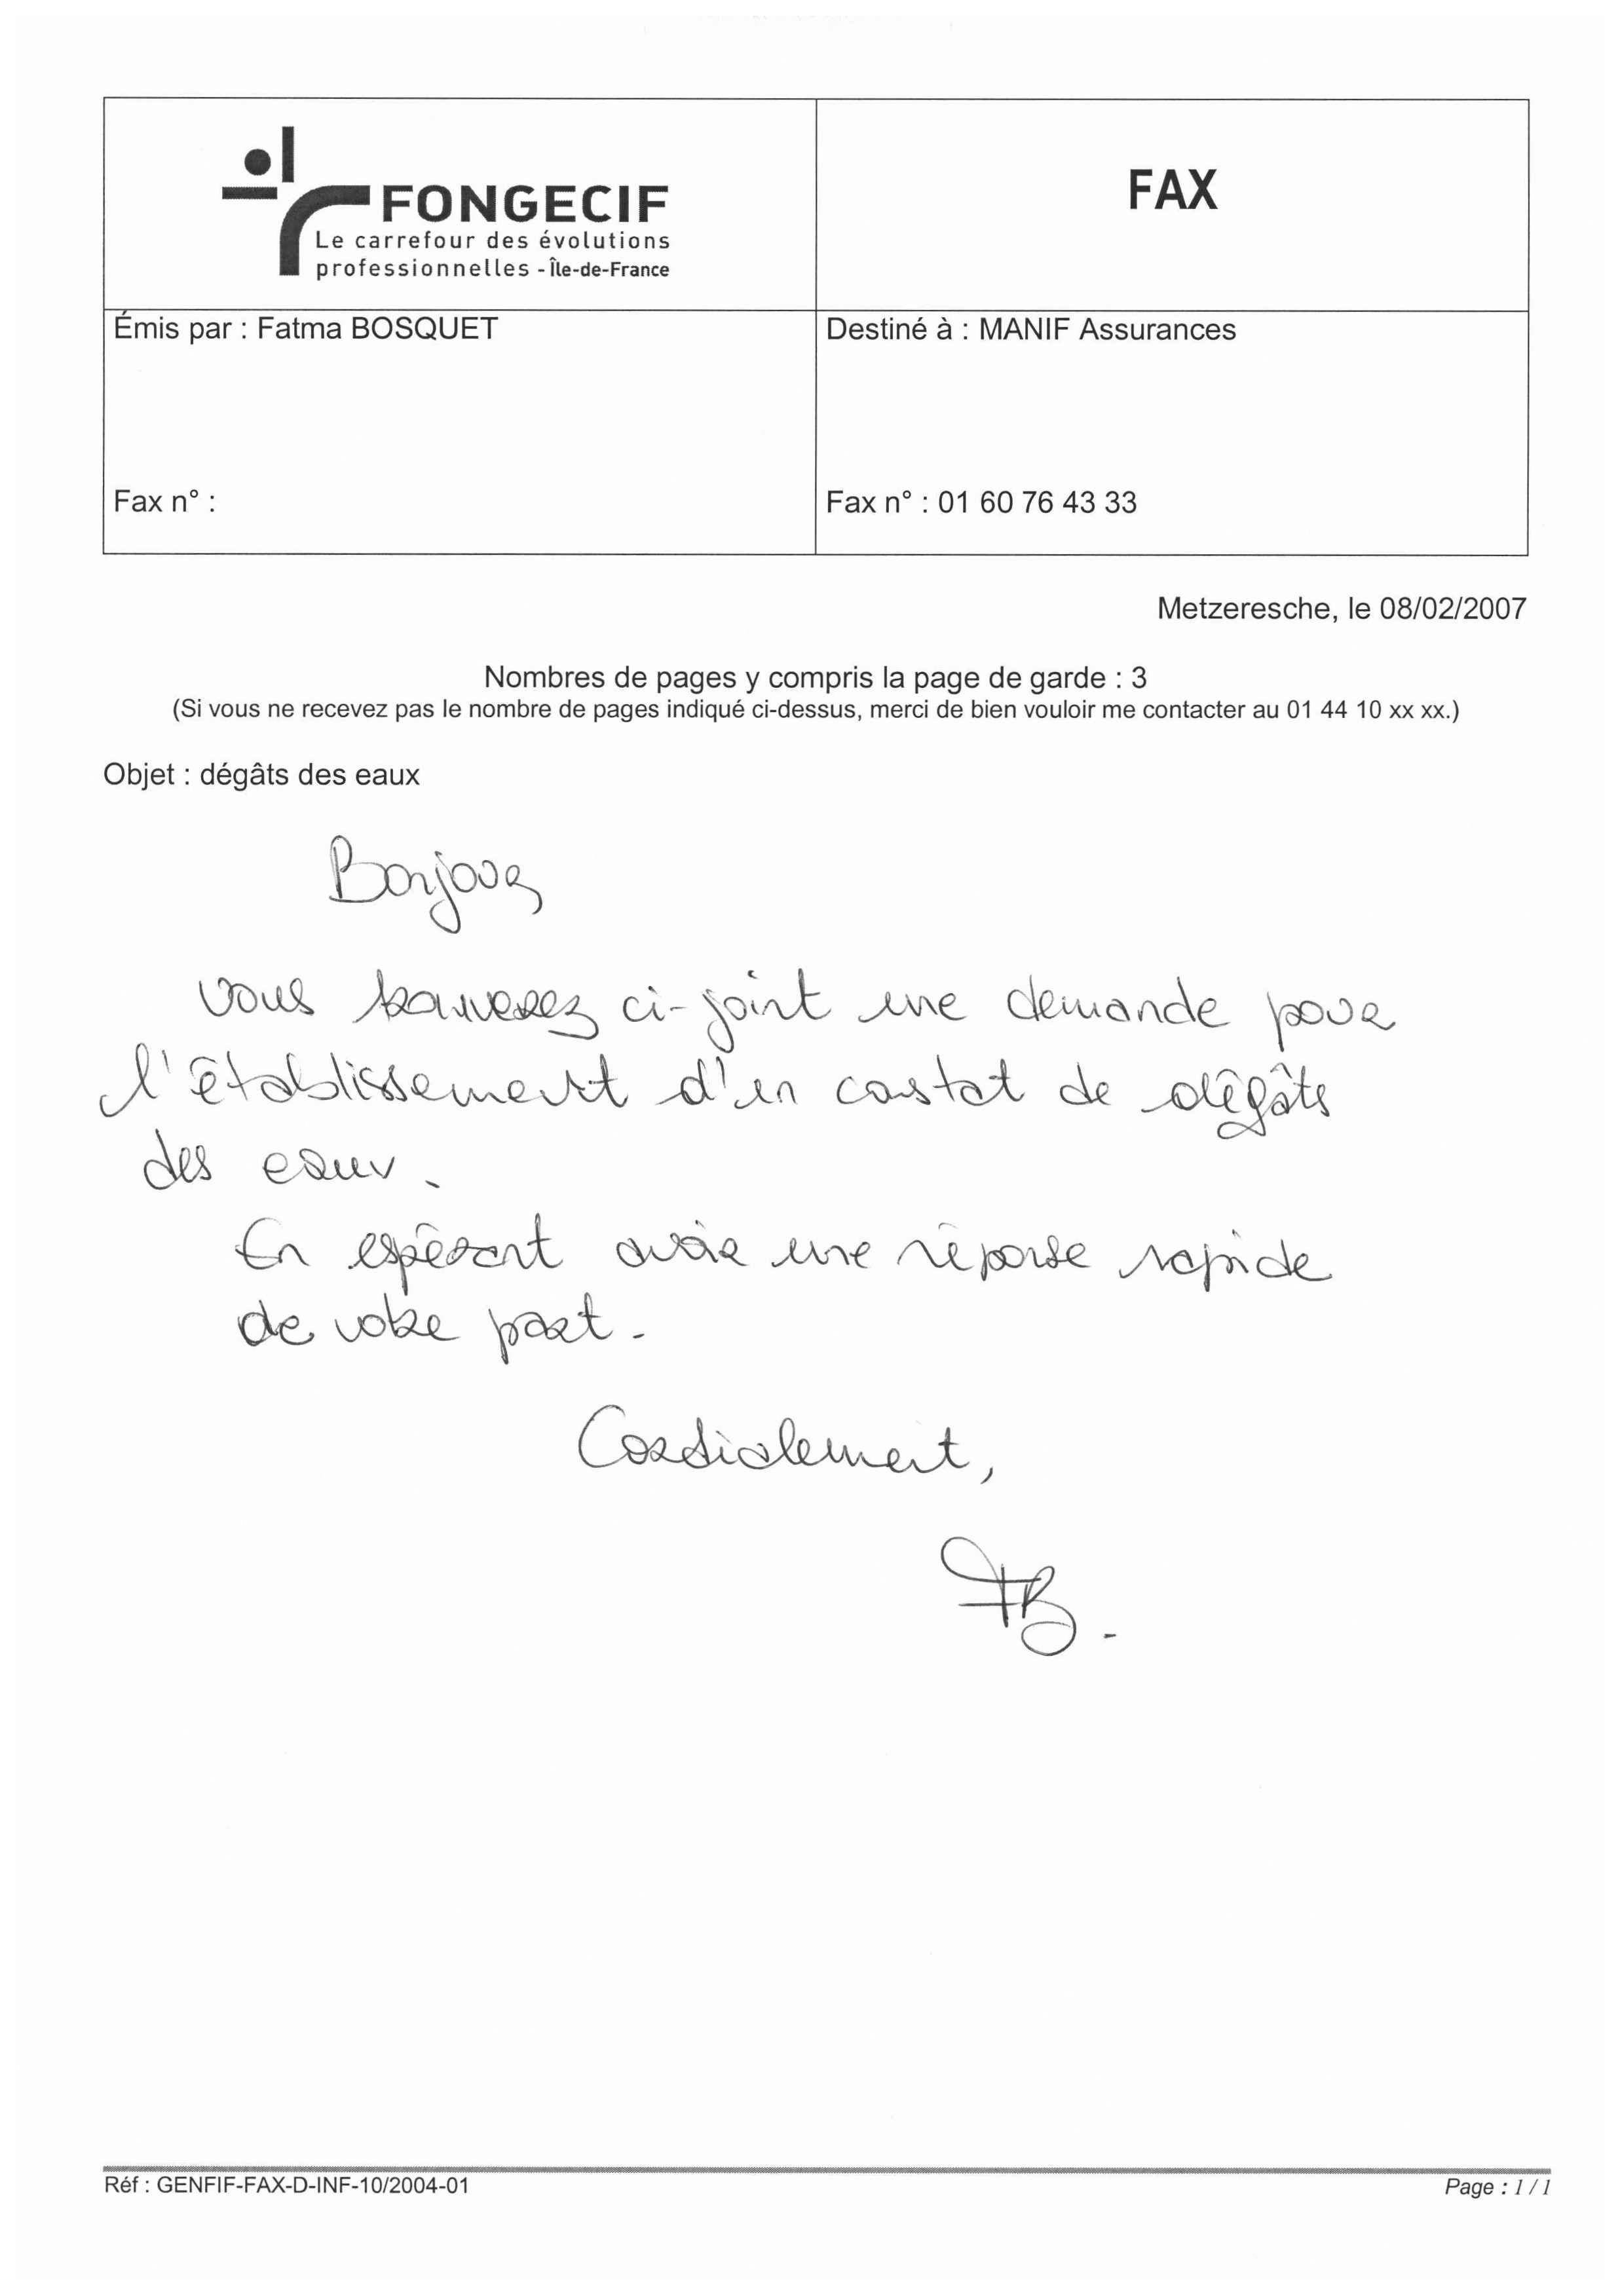 FONGECIF
Le carrefour des évolutions
professionnelles - Île-de-France
FAX
Émis par : Fatma BOSQUET
Fax n° :
Destiné à : MANIF Assurances
Fax n° : 01 60 76 43 33
Metzeresche, le 08/02/2007
Nombres de pages y compris la page de garde : 3
(Si vous ne recevez pas le nombre de pages indiqué ci-dessus, merci de bien vouloir me contacter au 01 44 10 xx xx.)
Objet : dégâts des eaux
Bonjour,
Vous trouverez ci-joint une demande pour
l'établissement d'un constat de dégâts
des eaux.
En espérant avoir une réponse rapide
de votre part.
Cordialement,
FB.
Réf : GENFIF-FAX-D-INF-10/2004-01
Page : 1 / 1